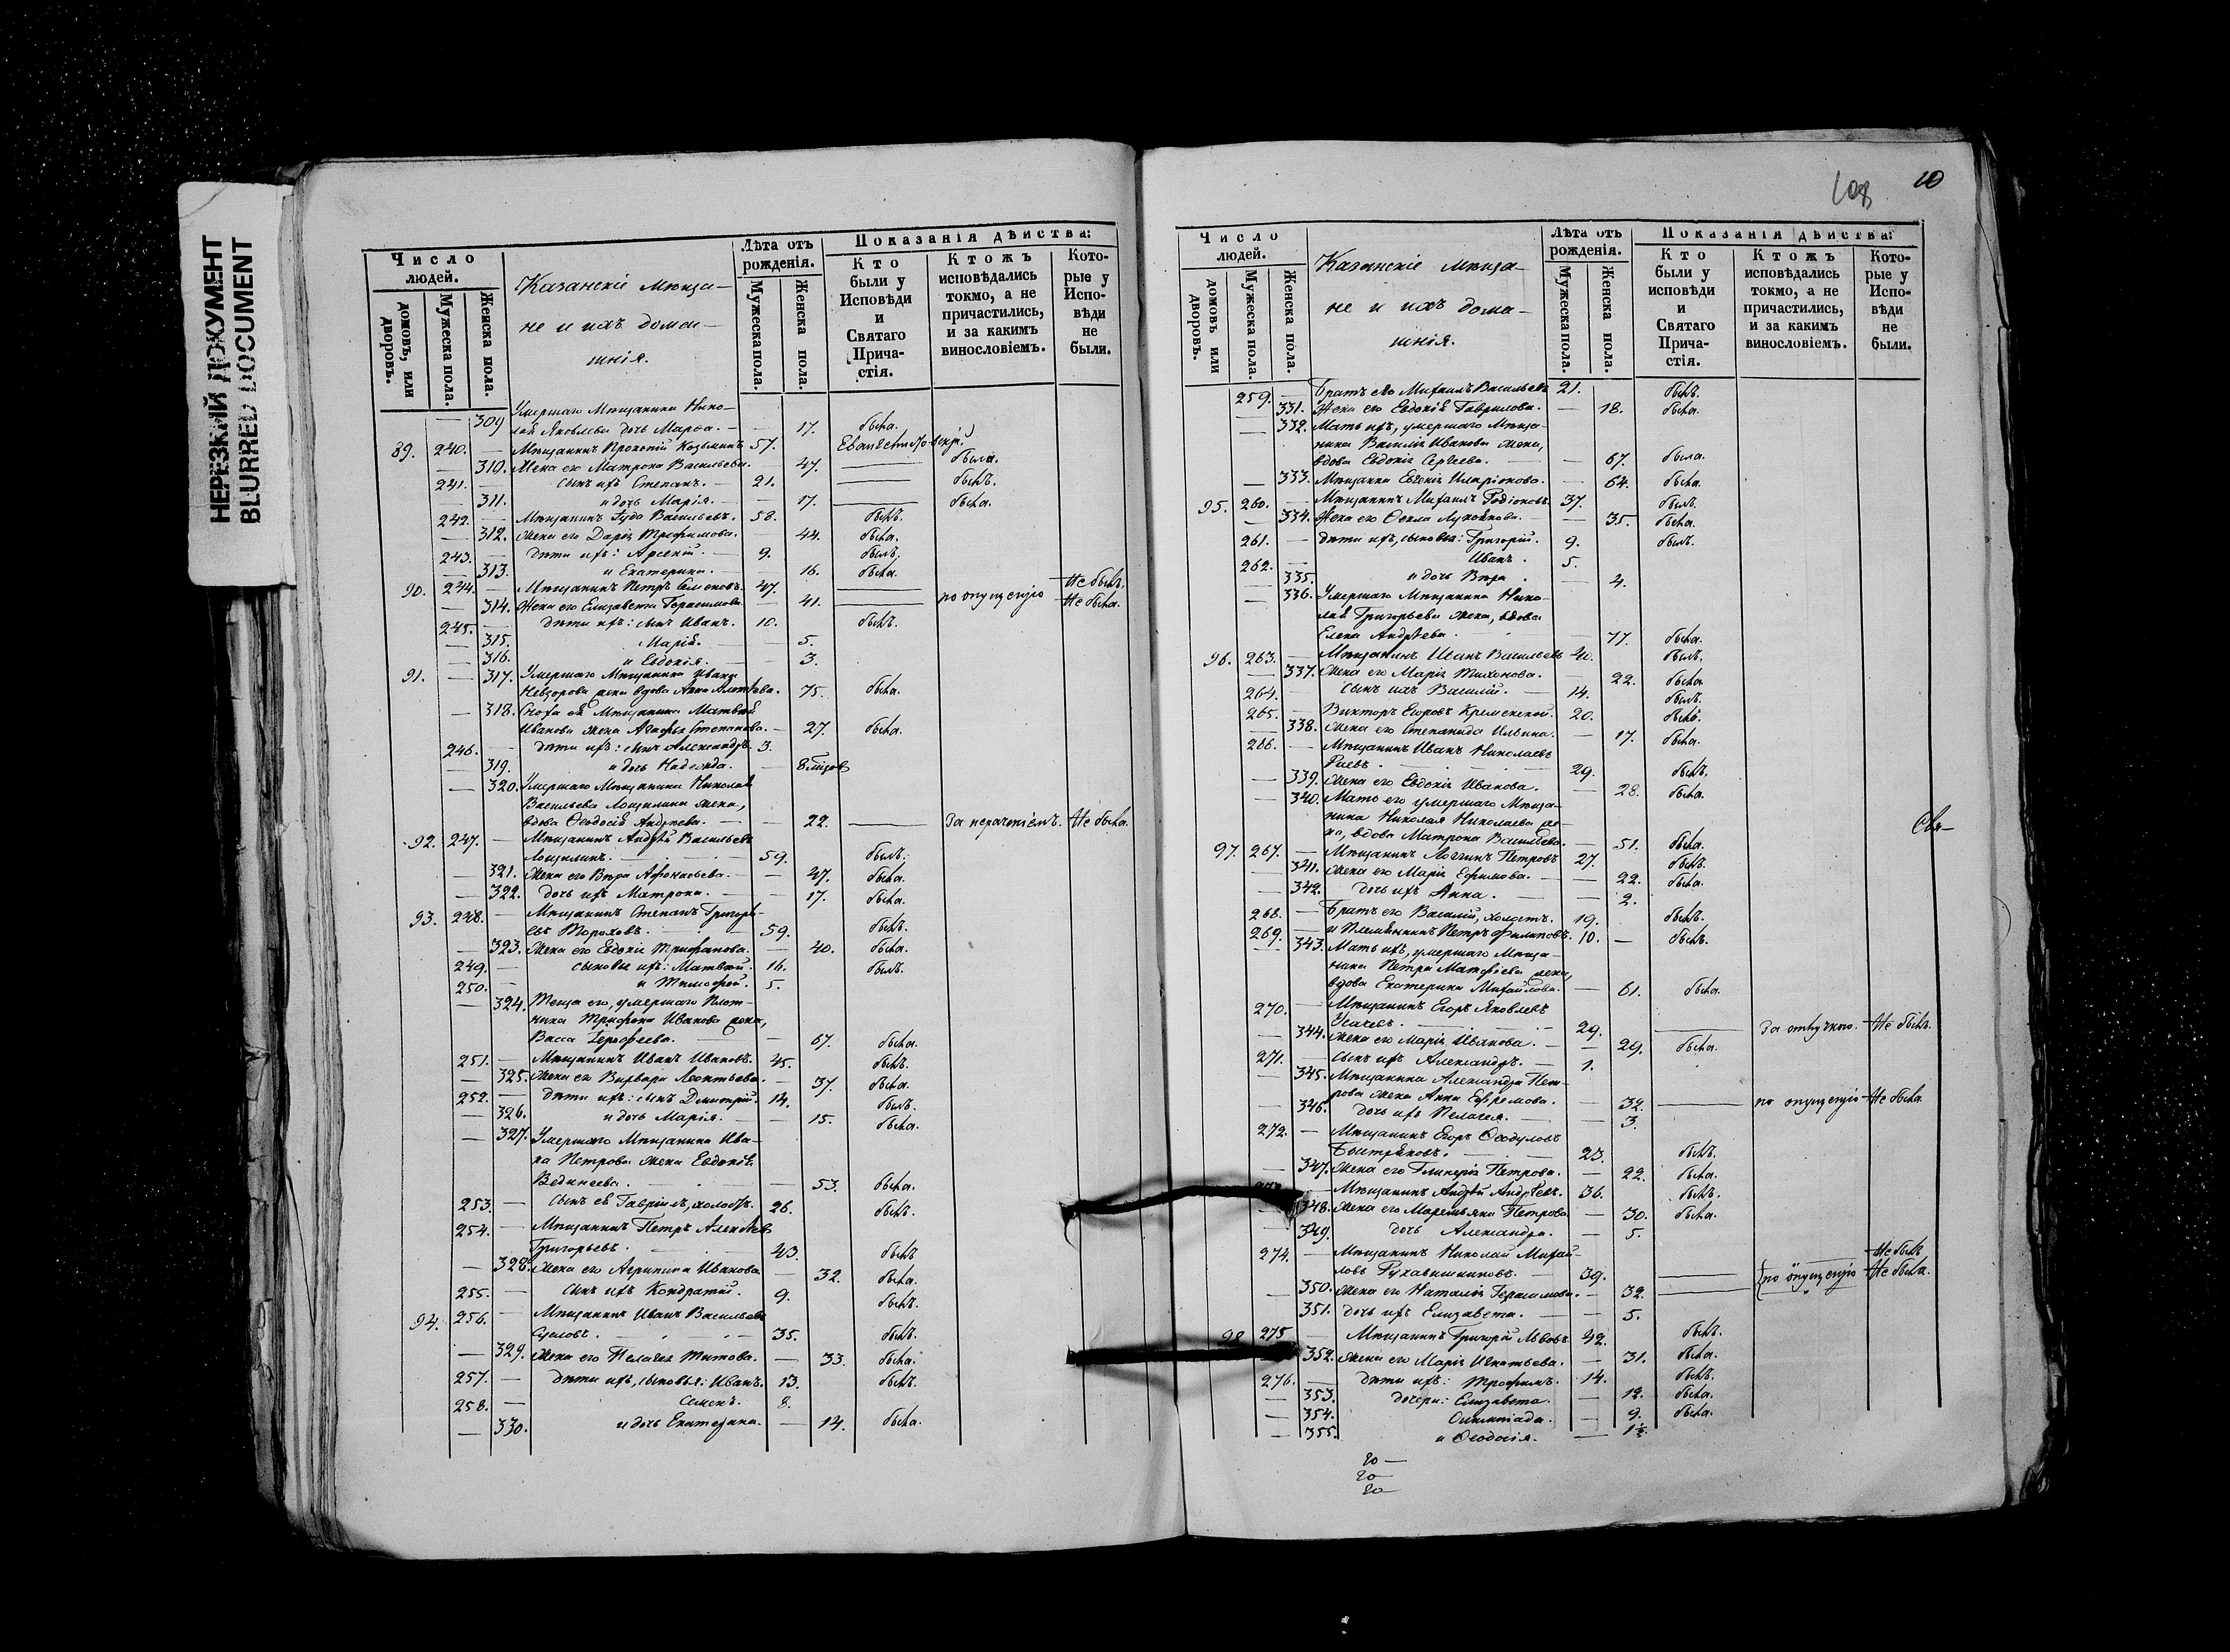 НЕРЕЗКИЙ ДОКУМЕНТ
BLURRED DOCUMENT
Число людей.
домовъ, или дворовъ.
Мужеска пола.
Женска пола.
Казанскіе мѣща-
не и ихъ домаш-
шнія.
Лѣта отъ рожденія.
Мужеска пола.
Женска пола.
Показанія дѣйства:
Кто были у Исповѣди и Святаго Прича-стія.
Ктожъ исповѣдались токмо, а не причастились, и за какимъ винословіемъ.
Кото-рые у Испо-вѣди не были.
— 309 Умершаго Мѣщанина Нико-
лая Яковлева дочь Марѳа. — — 17. была.
89. 240. — Мѣщанинъ Прокопій Козьминъ 57.
— 310. Жена его Матрона Васильева. — 47. — была.
241. — сынъ ихъ Степанъ. — 21. — былъ.
311. и дочь Марія. — — 17. — была.
242. — Мѣщанинъ Іуда Васильевъ. 58. былъ.
— 312. Жена его Дарія Трофимова. — 44. была.
243. — дѣти ихъ: Арсеній. — 9. былъ.
— 313. и Екатерина. — 16. была.
90. 244. — Мѣщанинъ Петръ Семеновъ. 47. — Не былъ.
— 314. Жена его Елизавета Герасимова — 41. — по опущенію Не была.
245. — дѣти ихъ: сынъ Иванъ. 10. былъ.
— 315. Марія. — 5.
— 316. и Евдокія. — 3.
91. — 317. Умершаго Мѣщанина Ивана
Невзорова жена вдова Анна 75. была.
— 318. Сноха ея Мѣщанина Матвѣя
Иванова жена Агафья Степанова. — 27. была.
246. — дѣти ихъ: сынъ Александръ. 3.
— 319. и дочь Надежда. — 8
— 320. Умершаго Мѣщанина Николая
Васильева Лощилина жена,
вдова Ѳеодосія Андреева. — — 22. — За нераченіемъ. Не была.
92. 247. — Мѣщанинъ Андрей Васильевъ
Лощилинъ. 59. былъ.
— 321. Жена его Вѣра Афонасьева. — 47. была.
— 322. дочь ихъ Матрона. — — 17. была.
93. 248. — Мѣщанинъ Степанъ Григорь-
евъ Тороховъ. 59. былъ.
— 323. Жена его Евдокія Трифанова. — 40. была.
249. — сыновья ихъ: Матвѣй. 16. былъ.
250. — и Тимофей. 5.
— 324. Теща его, умершаго Плот-
ника Трифона Иванова жена,
Васса Ерофеева. — — 67. была.
251. — Мѣщанинъ Иванъ Ивановъ. 45. былъ.
— 325. Жена его Варвара Леонтьева. — 37. была.
252. — дѣти ихъ: сынъ Дмитрій. 14. былъ.
— 326. и дочь Марія. — 15. была.
— 327. Умершаго Мѣщанина Ива-
на Петрова жена Евдокія
— 53. была.
253. — сынъ ея Гавріилъ, холостъ. 26. былъ.
254. — Мѣщанинъ Петръ Алексѣевъ
Григорьевъ. 43. былъ
— 328. Жена его Агрипина Иванова — 32. была.
255. — сынъ ихъ Кондратій. 9. былъ.
94. 256. — Мѣщанинъ Иванъ Васильевъ
Сусловъ. 35. былъ.
— 329. Жена его Пелагея Титова. — 33. была.
257. — дѣти ихъ, сыновья: Иванъ. 13. былъ.
258. — Семенъ. 8.
— 330. и дочь Екатерина. — 14. была.
108 10
Число людей.
домовъ или дворовъ.
Мужеска пола.
Женска пола.
Казанскіе мѣща-
не и ихъ дома-
шнія.
Лѣта отъ рожденія.
Мужеска пола.
Женска пола.
Показанія дѣйства:
Кто были у исповѣди и Святаго Прича-стія.
Ктожъ исповѣдались токмо, а не причастились, и за какимъ винословіемъ.
Кото-рые у Испо-вѣди не были.
259. — Братъ его Михаилъ Васильевъ 21. былъ.
— 331. Жена его Евдокія Гаврилова. — 18. была.
— 332. Мать ихъ, умершаго Мѣща-
нина Василія Иванова жена,
вдова Евдокія Сергеева. — — 67. была.
— 333. Мѣщанка Евгенія Иларіонова. — 64. была.
95. 260. — Мѣщанинъ Михаилъ Родіоновъ. 37. былъ.
— 334. Жена его Ѳекла Лукоянова. — — 35. была.
261. — дѣти ихъ, сыновья: Григорій. 9. былъ.
262. — Иванъ. 5.
— 335. и дочь Вѣра. — 4.
— 336. Умершаго Мѣщанина Нико-
лая Григорьева жена, вдова
Елена Андреева. — 77. была.
96. 263. — Мѣщанинъ Иванъ Васильевъ 40. былъ.
— 337. Жена его Марія Тихонова. — 22. была
264. — сынъ ихъ Василій. — 14. былъ.
265. — Викторъ Егоровъ Кременской. 20. былъ.
— 338. Жена его Степанида Ильина. — 17. была.
266. — Мѣщанинъ Иванъ Николаевъ
Раевъ. 29. былъ.
— 339. Жена его Евдокія Иванова. — 28. была.
— 340. Мать его умершаго Мѣща-
нина Николая Николаева же-
на, вдова Матрона Васильева. — 51. была.
97. 267. — Мѣщанинъ Логгинъ Петровъ 27. былъ.
— 341. Жена его Марія Ефимова. — — 22. была.
— 342. дочь ихъ Анна. — — 2.
268. — Братъ его Василій, холостъ. 19. былъ.
269. — и племянникъ Петръ Филиповъ. 10. — былъ.
— 343. Мать ихъ, умершаго Мѣща-
нина Петра Матфіева жена,
вдова Екатерина Михайлова. — 61. была.
270. — Мѣщанинъ Егоръ Яковлевъ
Усачевъ. 29. — За отлучкою. Не былъ.
— 344. Жена его Марія Иванова. — — 29. была.
271. — сынъ ихъ Александръ. — 1.
— 345. Мѣщанина Александра Пет-
рова жена Анна Ефремова. — 32. — по опущенію Не была.
— 346. дочь ихъ Пелагея. — 3.
272. — Мѣщанинъ Егоръ Ѳеодуловъ
23. былъ.
— 347. Жена его Гликерія Петрова. — 22. была.
— Мѣщанинъ Андрей Андреевъ. 36. былъ.
348. Жена его Маремьяна Петрова — 30. была.
349. дочь Александра. — 5.
274. — Мѣщанинъ Николай Михай-
ловъ Рукавишниковъ. — 39. — Не былъ
— 350. Жена его Наталія Герасимова. — 32. — по опущенію Не была.
351. дочь ихъ Елизавета. — 5.
98 275 — Мѣщанинъ Григорій Львовъ 42. былъ.
352. Жена его Марія Игнатьева. — 31. была.
276. — дѣти ихъ: Трофимъ. 14. былъ.
— 353. дочери: Елизавета. — 12. была.
— 354. Олимпіада. — 9. была.
— 355. и Ѳеодосія. — 1½
20 —
20 —
20 —